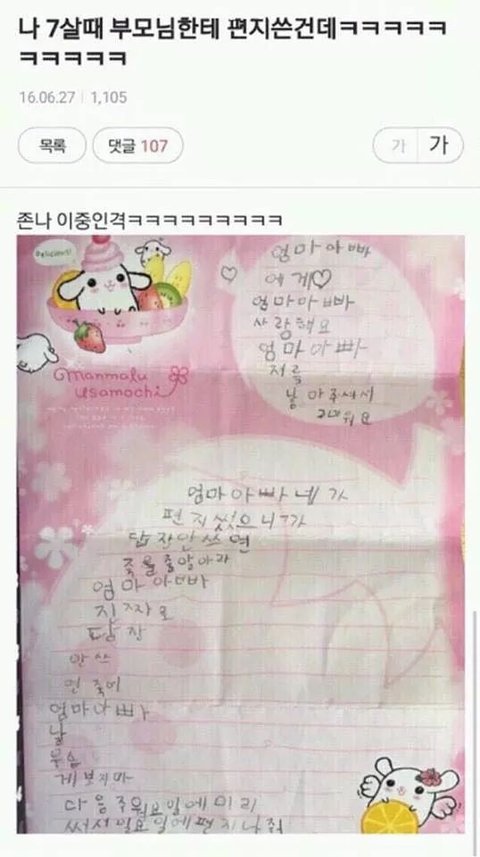 나 7살때 부모님한테 편지쓴건데ㅋㅋㅋㅋㅋ
ㅋㅋㅋㅋㅋ
16.06.27 | 1,105
목록
댓글 107
가
가
존나 이중인격ㅋㅋㅋㅋㅋㅋㅋㅋㅋ
Delicious!!
Manmalu
Usamochi
엄마아빠
에게♡
엄마아빠
사랑해요
엄마아빠
저를
낳아주셔서
고마워요
엄마아빠 내가
편지썼으니까
답잔안쓰면
죽을줄알아라
엄마아빠
진짜로
답잔
안쓰
면죽어
엄마아빠
날
우습
게보지마
다음주월요일에미리
써서일요일에편지나줘